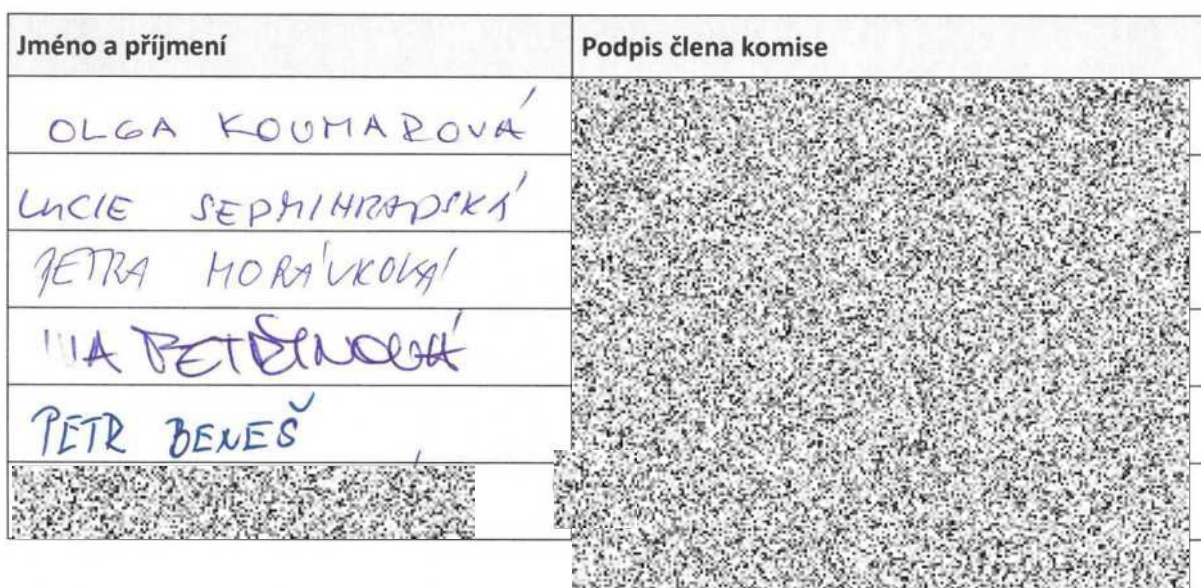 Jméno a příjmení Podpis člena komise
OLGA KOUMAROVÁ
LUCIE SEDMIHRADSKÁ
PETRA MORÁVKOVÁ
PETR BENEŠ